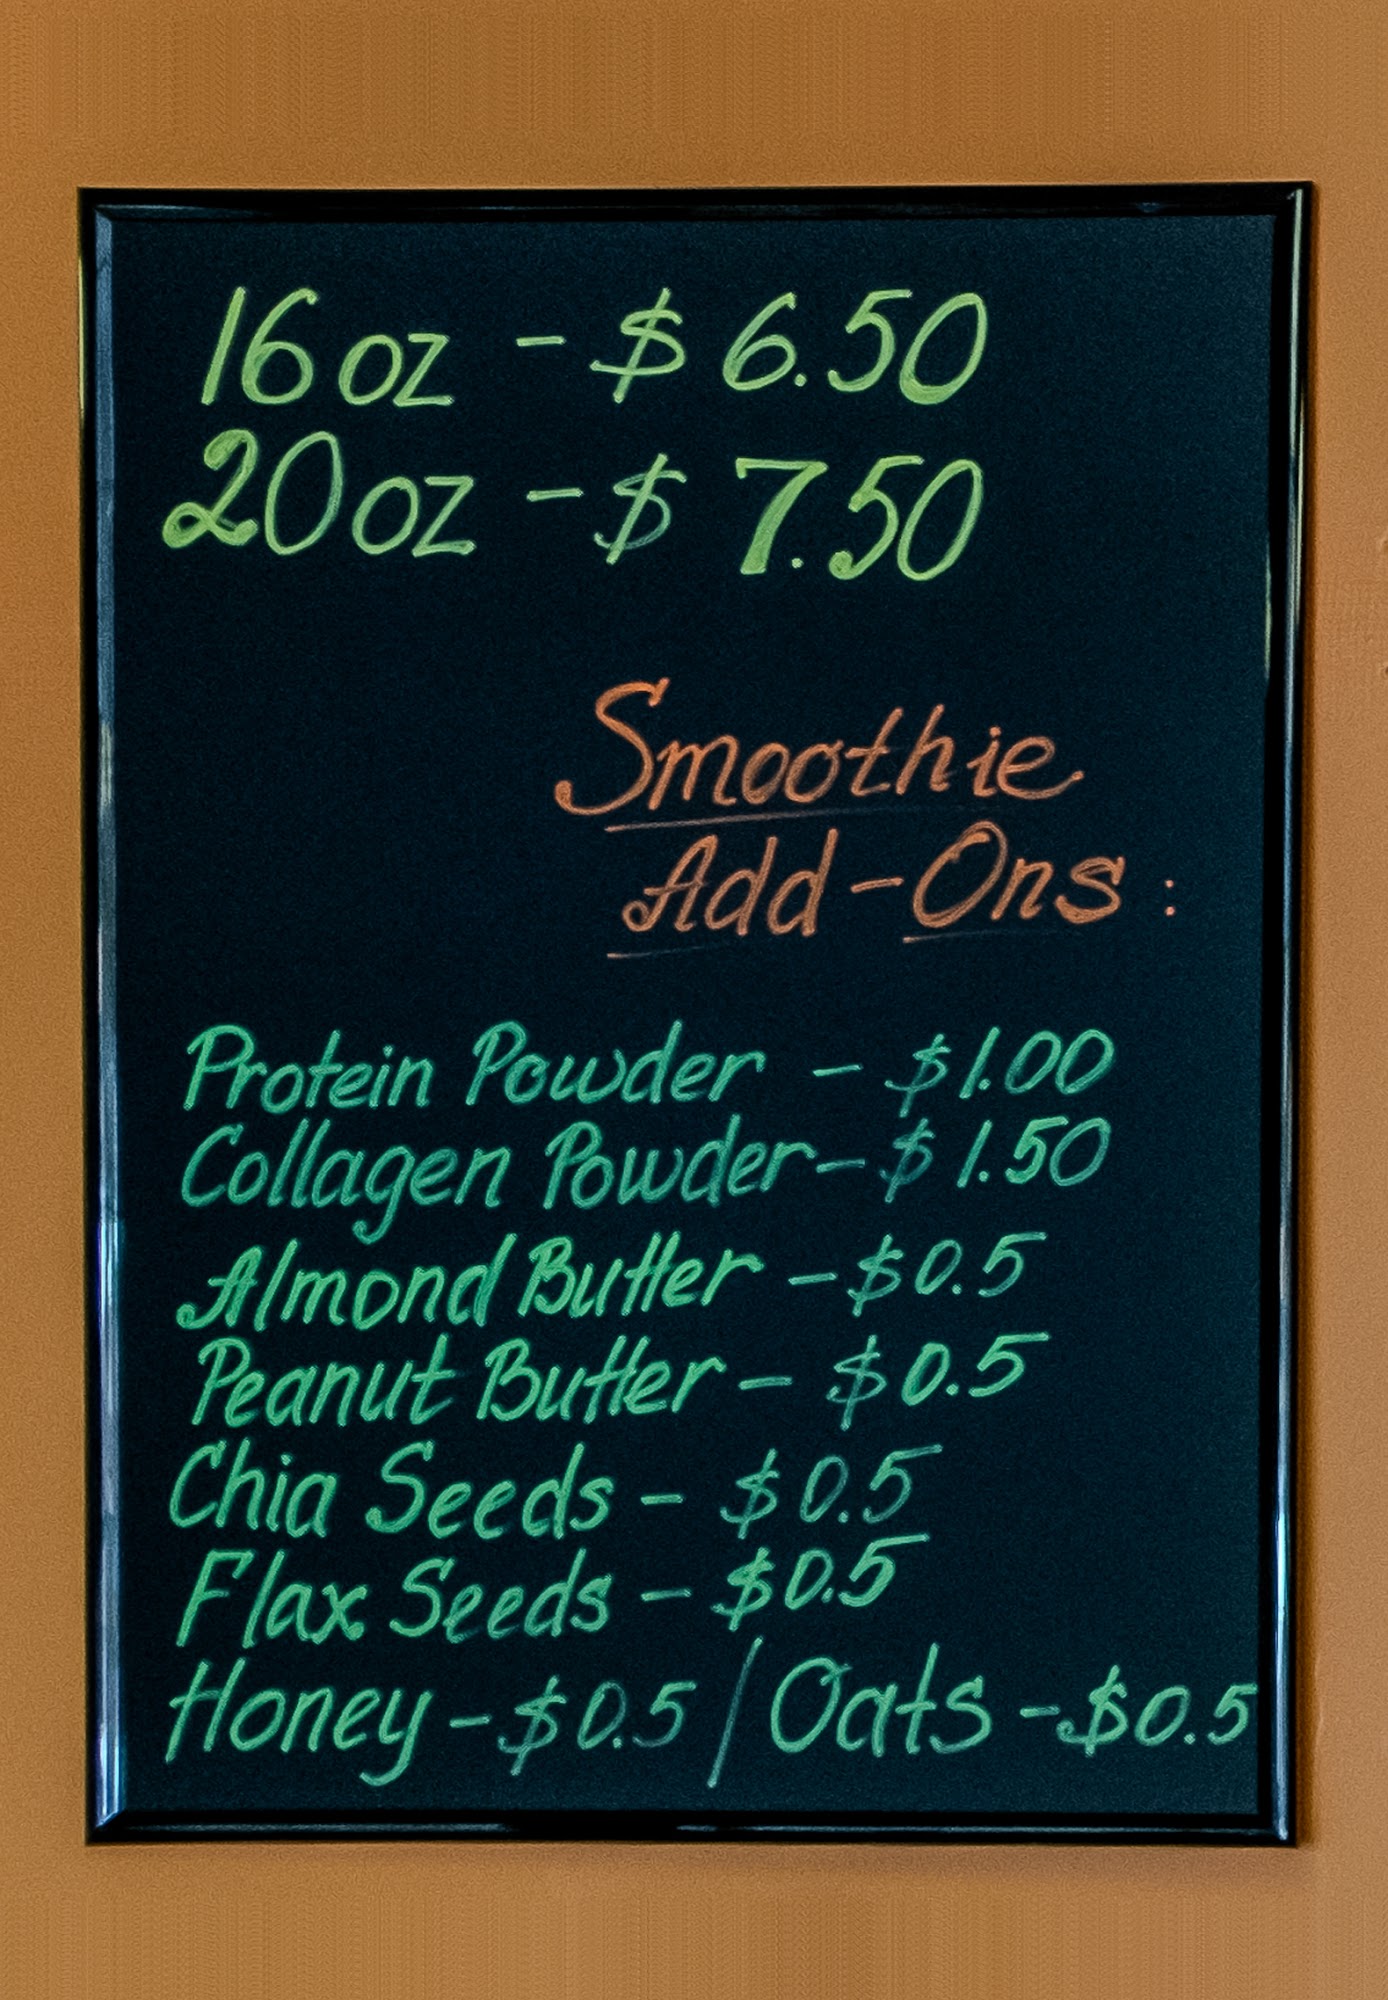 16 oz - $ 6.50
20 oz - $ 7.50
Smoothie
Add-Ons :
Protein Powder - $1.00
Collagen Powder - $1.50
Almond Butter - $0.5
Peanut Butter - $0.5
Chia Seeds - $0.5
Flax Seeds - $0.5
Honey - $0.5 / Oats - $0.5